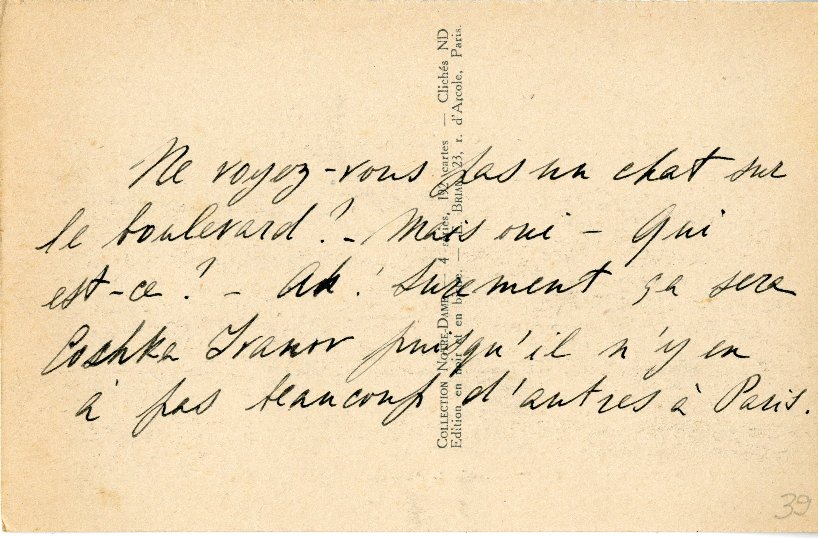 Ne voyez-vous pas un chat sur
le boulevard? - Mais oui - Qui
est-ce? - Ah! Surement ça sera
Coshka Ivanov puisqu'il n'y en
à pas beaucoup d'autres à Paris.
COLLECTION NOTRE-DAME — 4 séries, 192 cartes — Clichés ND
Edition en noir et en — BRIAN, 23, r. d'Arcole, Paris.
39